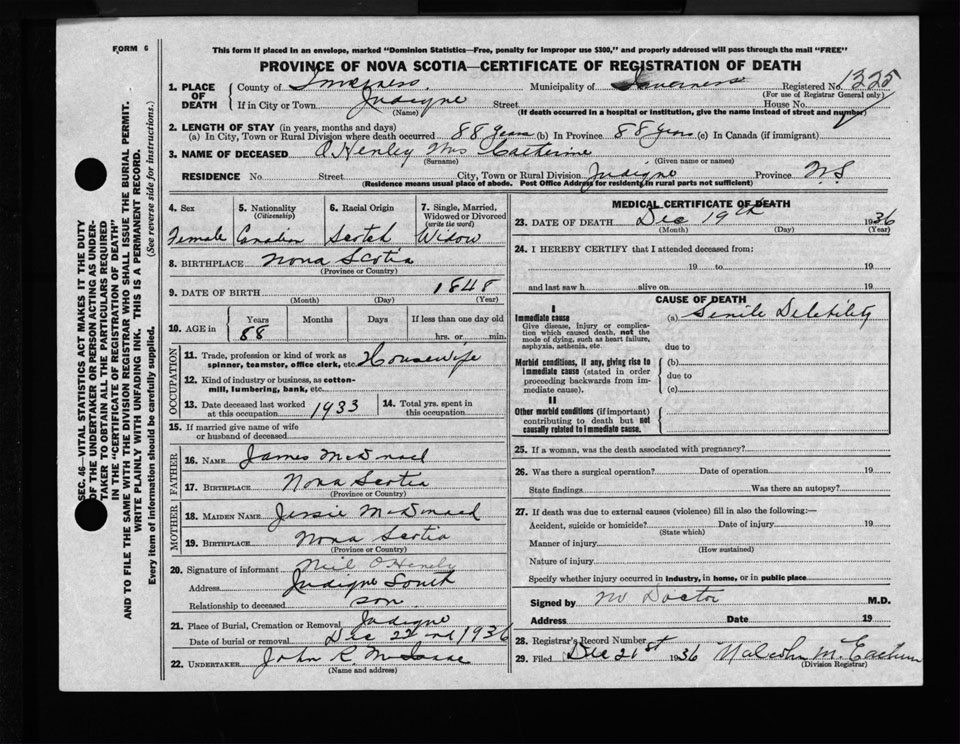 FORM 6
This form if placed in an envelope, marked "Dominion Statistics—Free, penalty for improper use $300," and properly addressed will pass through the mail "FREE"
PROVINCE OF NOVA SCOTIA—CERTIFICATE OF REGISTRATION OF DEATH
1. PLACE OF DEATH
County of Inverness Municipality of Inverness Registered No. 1325
(For use of Registrar General only)
If in City or Town Judique Street House No.
(Name) (If death occurred in a hospital or institution, give the name instead of street and number)
2. LENGTH OF STAY (in years, months and days)
(a) In City, Town or Rural Division where death occurred 88 years (b) In Province 88 years (c) In Canada (if immigrant)
3. NAME OF DECEASED O'Henley Mrs Catherine
(Surname) (Given name or names)
RESIDENCE No. Street City, Town or Rural Division Judique Province N.S
(Residence means usual place of abode. Post Office Address for residents in rural parts not sufficient)
4. Sex Female
5. Nationality (Citizenship) Canadian
6. Racial Origin Scotch
7. Single, Married, Widowed or Divorced (write the word) Widow
8. BIRTHPLACE Nova Scotia
(Province or Country)
9. DATE OF BIRTH 1848
(Month) (Day) (Year)
10. AGE in Years Months Days If less than one day old
88 hrs. or min.
OCCUPATION
11. Trade, profession or kind of work as spinner, teamster, office clerk, etc. Housewife
12. Kind of industry or business, as cotton-mill, lumbering, bank, etc.
13. Date deceased last worked at this occupation 1933
14. Total yrs. spent in this occupation
15. If married give name of wife or husband of deceased
FATHER
16. NAME James
17. BIRTHPLACE Nova Scotia
(Province or Country)
MOTHER
18. MAIDEN NAME Jessie
19. BIRTHPLACE Nova Scotia
(Province or Country)
20. Signature of informant Neil O'Henly
Address Judique South
Relationship to deceased son
21. Place of Burial, Cremation or Removal Judique
Date of burial or removal Dec 22nd 1936
22. UNDERTAKER John R. McIsaac
(Name and address)
MEDICAL CERTIFICATE OF DEATH
23. DATE OF DEATH Dec 19th 1936
(Month) (Day) (Year)
24. I HEREBY CERTIFY that I attended deceased from:
19 to 19
and last saw h alive on 19
CAUSE OF DEATH
I
Immediate cause
Give disease, injury or complication which caused death, not the mode of dying, such as heart failure, asphyxia, asthenia, etc.
(a) Senile Debility
due to
Morbid conditions, if any, giving rise to immediate cause (stated in order proceeding backwards from immediate cause).
(b)
due to
(c)
II
Other morbid conditions (if important) contributing to death but not causally related to immediate cause.
25. If a woman, was the death associated with pregnancy?
26. Was there a surgical operation? Date of operation 19
State findings Was there an autopsy?
27. If death was due to external causes (violence) fill in also the following:—
Accident, suicide or homicide? Date of injury 19
(State which)
Manner of injury
(How sustained)
Nature of injury
Specify whether injury occurred in industry, in home, or in public place
Signed by no Doctor M.D.
Address Date 19
28. Registrar's Record Number
29. Filed Dec 21st 1936 Malcolm McEachern
(Division Registrar)
SEC. 46—VITAL STATISTICS ACT MAKES IT THE DUTY
OF THE UNDERTAKER OR PERSON ACTING AS UNDER-
TAKER TO OBTAIN ALL THE PARTICULARS REQUIRED
IN THE "CERTIFICATE OF REGISTRATION OF DEATH"
AND TO FILE THE SAME WITH THE DIVISION REGISTRAR WHO SHALL ISSUE THE BURIAL PERMIT.
WRITE PLAINLY WITH UNFADING INK. THIS IS A PERMANENT RECORD.
Every item of information should be carefully supplied. (See reverse side for instructions.)